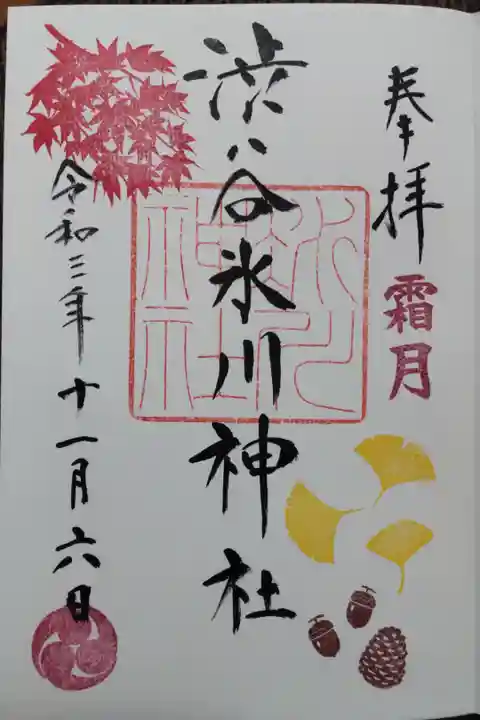 奉拝
霜月
渋谷氷川神社
氷川
神社
令和三年十一月六日